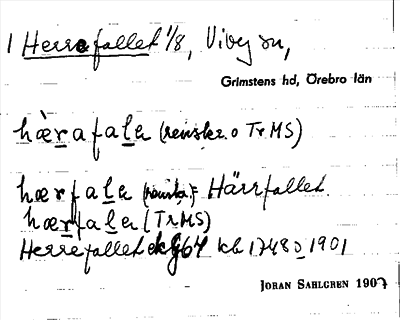 1 Herrefallet 1/8, Viby sn,
Grimstens hd, Örebro län
hæ̀rafalɛ (renskr. o Tr MS)
hærfalɛ (renskr.) = Härrfallet
hærfalɛ (Tr. MS)
Herrefallet ek G 64 kb 1748 o 1901
JORAN SAHLGREN 1907